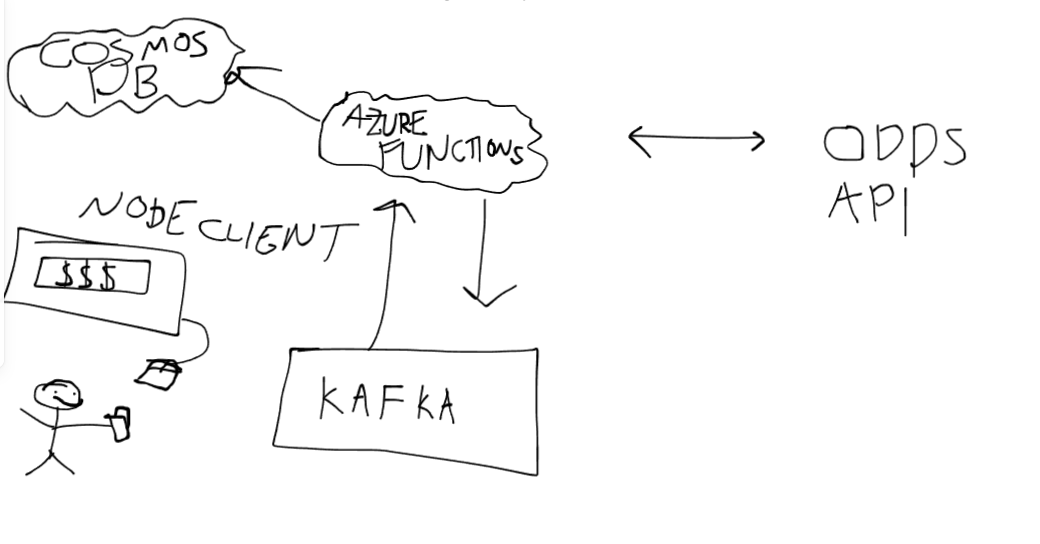 COSMOS
DB
AZURE
FUNCTIONS
ODDS
API
NODE CLIENT
$$$
KAFKA